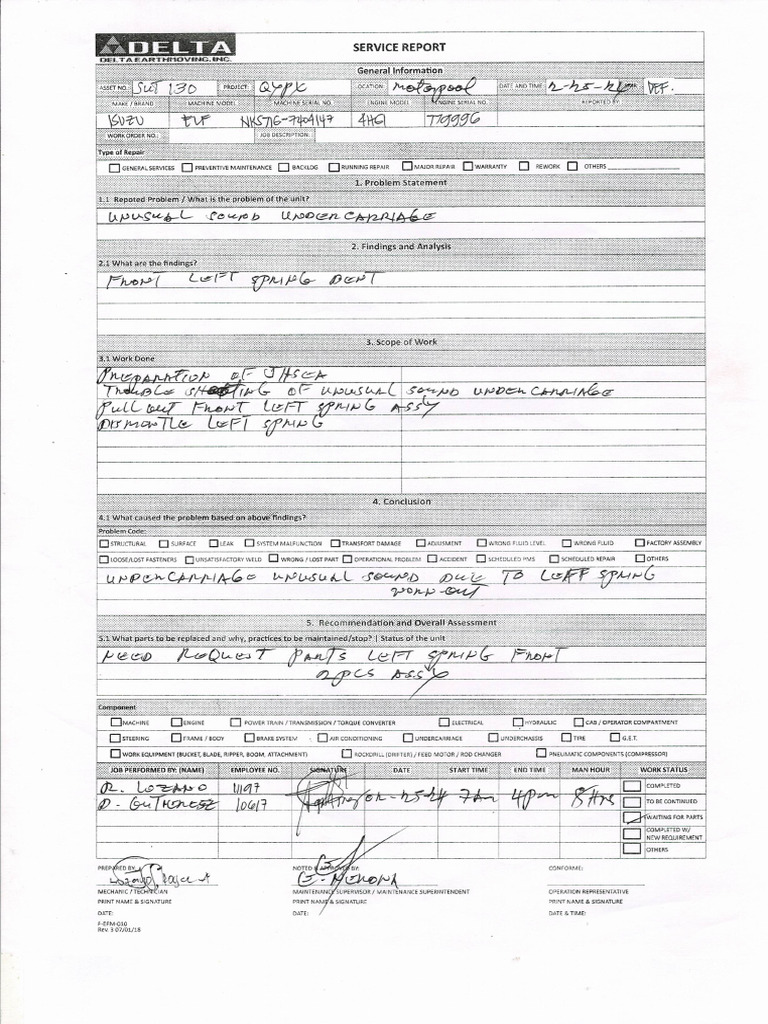 DELTA
DELTA EARTHMOVING, INC.
SERVICE REPORT
General Information
ASSET NO. SWT 130 PROJECT: QYPX LOCATION: Motorpool DATE AND TIME: 2-25-24
MAKE / BRAND MACHINE MODEL MACHINE SERIAL NO. ENGINE MODEL ENGINE SERIAL NO. REPORTED BY:
ISUZU ELF NKS71E-7404147 4HG1 779996
WORK ORDER NO.: JOB DESCRIPTION:
Type of Repair
GENERAL SERVICES PREVENTIVE MAINTENANCE BACKLOG RUNNING REPAIR MAJOR REPAIR WARRANTY REWORK OTHERS
1. Problem Statement
1.1 Repoted Problem / What is the problem of the unit?
UNUSUAL SOUND UNDERCARRIAGE
2. Findings and Analysis
2.1 What are the findings?
FRONT LEFT SPRING DENT
3. Scope of Work
3.1 Work Done
PREPARATION OF JHSEA
TROUBLE SHOOTING OF UNUSUAL SOUND UNDERCARRIAGE
PULL OUT FRONT LEFT SPRING ASSY
DISMONTLE LEFT SPRING
4. Conclusion
4.1 What caused the problem based on above findings?
Problem Code:
STRUCTURAL SURFACE LEAK SYSTEM MALFUNCTION TRANSFORT DAMAGE ADJUSMENT WRONG FLUID LEVEL WRONG FLUID FACTORY ASSEMBLY
LOOSE/LOST FASTENERS UNSATISFACTORY WELD WRONG / LOST PART OPERATIONAL PROBLEM ACCIDENT SCHEDULED PMS SCHEDULED REPAIR OTHERS
UNDERCARRIAGE UNUSUAL SOUND DUE TO LEFT SPRING
WORN-OUT
5. Recommendation and Overall Assessment
5.1 What parts to be replaced and why, practices to be maintained/stop? | Status of the unit
NEED REQUEST PARTS LEFT SPRING FRONT
2PCS ASSY
Component
MACHINE ENGINE POWER TRAIN / TRANSMISSION / TORQUE CONVERTER ELECTRICAL HYDRAULIC CAB / OPERATOR COMPARTMENT
STEERING FRAME / BODY BRAKE SYSTEM AIR CONDITIONING UNDERCARRIAGE UNDERCHASSIS TIRE G.E.T.
WORK EQUIPMENT (BUCKET, BLADE, RIPPER, BOOM, ATTACHMENT) ROCKDRILL (DRIFTER) / FEED MOTOR / ROD CHANGER PNEUMATIC COMPONENTS (COMPRESSOR)
JOB PERFORMED BY: (NAME) EMPLOYEE NO. SIGNATURE DATE START TIME END TIME MAN HOUR WORK STATUS
R. LOZANO 11197 02-25-24 7am 4pm 8Hrs COMPLETED
D. GUTHEREEZ 10617 TO BE CONTINUED
WAITING FOR PARTS
COMPLETED W/
NEW REQUIREMENT
OTHERS
PREPARED BY: NOTED & APPROVED BY: CONFORME:
MECHANIC / TECHNICIAN MAINTENANCE SUPERVISOR / MAINTENANCE SUPERINTENDENT OPERATION REPRESENTATIVE
PRINT NAME & SIGNATURE PRINT NAME & SIGNATURE PRINT NAME & SIGNATURE
DATE: DATE: DATE & TIME:
F-EFM-010
Rev. 3 07/01/18